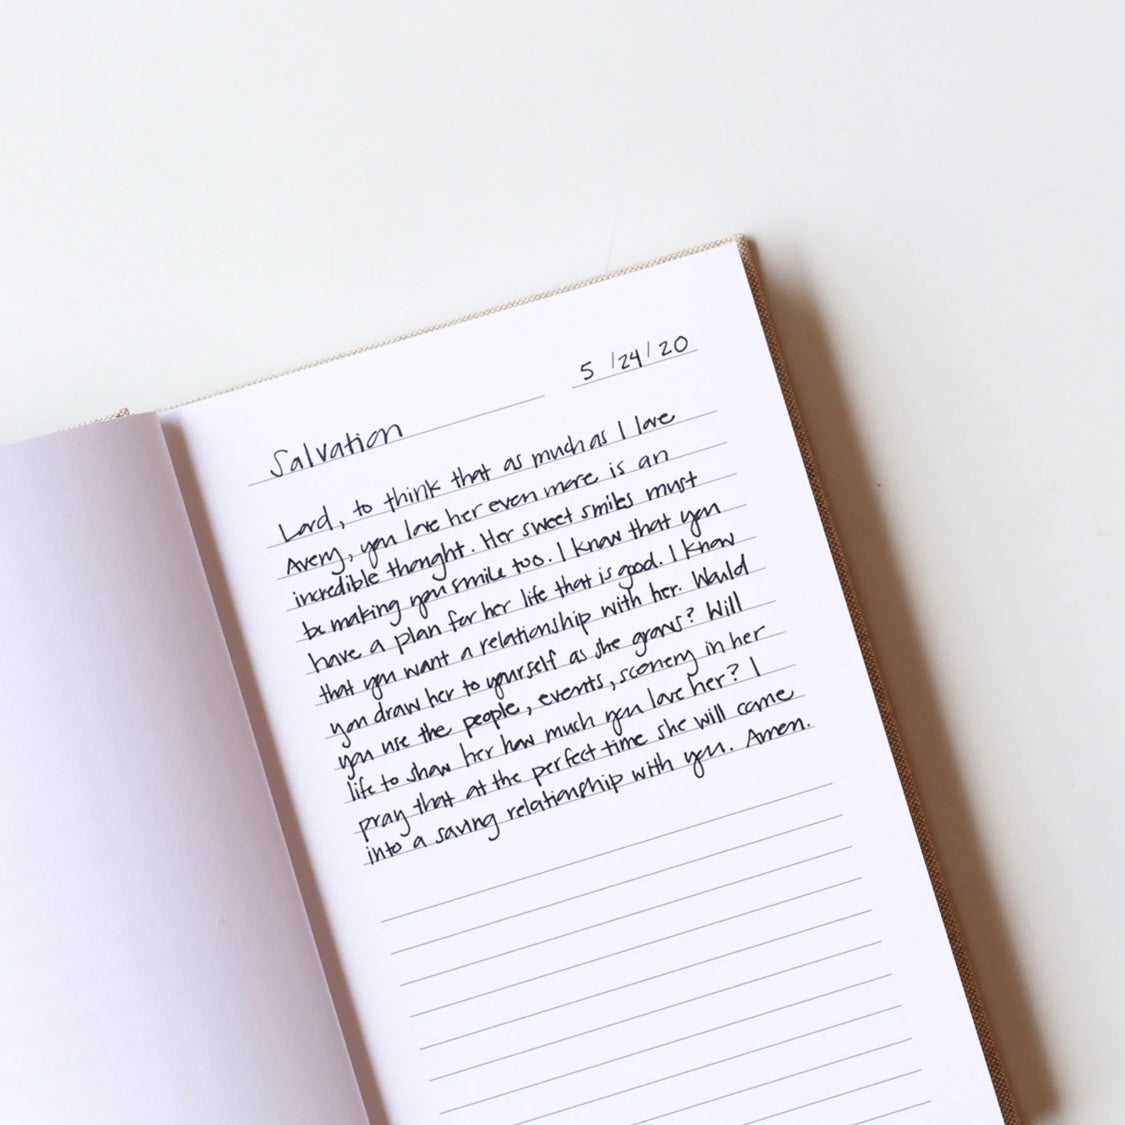 5 /24/ 20
Salvation
Lord, to think that as much as I love
Avery, you love her even more is an
incredible thought. Her sweet smiles must
be making you smile too. I know that you
have a plan for her life that is good. I know
that you want a relationship with her. Would
you draw her to yourself as she grows? Will
you use the people, events, scenery in her
life to show her how much you love her? I
pray that at the perfect time she will come
into a saving relationship with you. Amen.